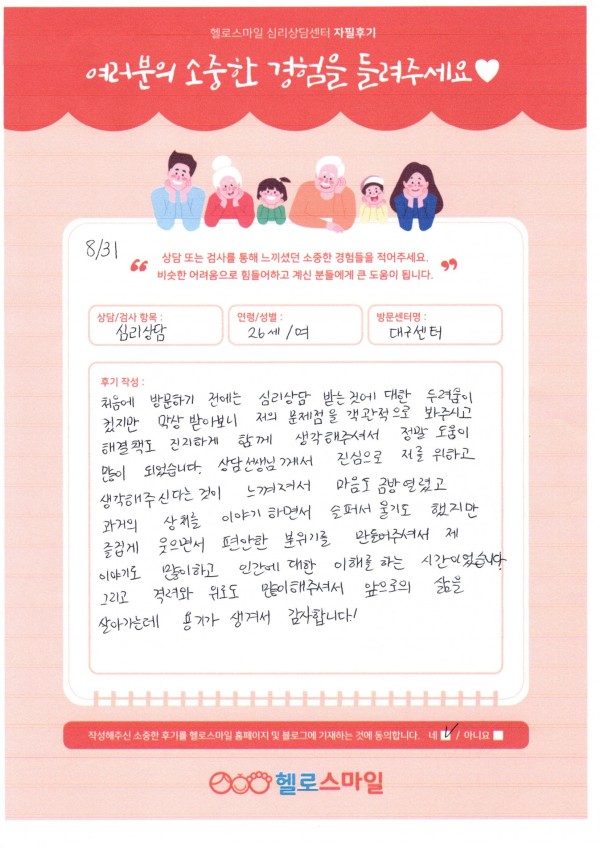 헬로스마일 심리상담센터 자필후기
여러분의 소중한 경험을 들려주세요
8/31
상담 또는 검사를 통해 느끼셨던 소중한 경험들을 적어주세요.
비슷한 어려움으로 힘들어하고 계신 분들에게 큰 도움이 됩니다.
상담/검사 항목 :
심리상담
연령/성별 :
26세/여
방문센터명 :
대구센터
후기 작성 :
처음에 방문하기 전에는 심리상담 받는것에 대한 두려움이
컸지만 막상 받아보니 저의 문제점을 객관적으로 봐주시고
해결책도 진지하게 함께 생각해주셔서 정말 도움이
많이 되었습니다. 상담선생님께서 진심으로 저를 위하고
생각해주신다는것이 느껴져서 마음도 금방 열렸고
과거의 상처를 이야기 하면서 슬퍼서 울기도 했지만
즐겁게 웃으면서 편안한 분위기를 만들어주셔서 제
이야기도 많이하고 인간에 대한 이해를 하는 시간이었습니다.
그리고 격려와 위로도 많이해주셔서 앞으로의 삶을
살아가는데 용기가 생겨서 감사합니다!
작성해주신 소중한 후기를 헬로스마일 홈페이지 및 블로그에 기재하는 것에 동의합니다. 네 / 아니요
헬로스마일